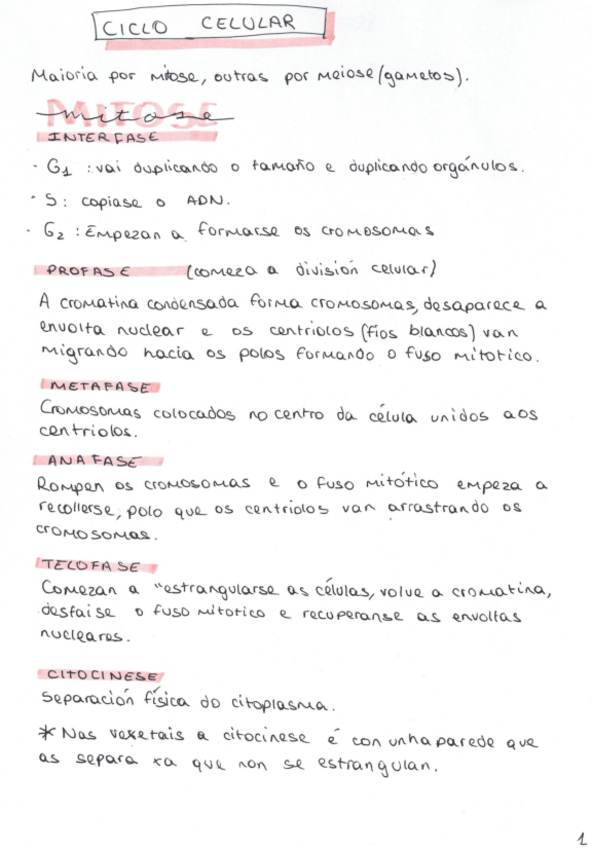 CICLO CELULAR
Maioria por mitose, outras por meiose (gametos).
MITOSE
mitose
INTERFASE
· G1 : vai duplicando o tamaño e duplicando orgánulos.
· S: copiase o ADN.
· G2 : Empezan a formarse os cromosomas
PROFASE (comeza a división celular)
A cromatina condensada forma cromosomas, desaparece a
envolta nuclear e os centriolos (fios blancos) van
migrando hacia os polos formando o fuso mitotico.
METAFASE
Cromosomas colocados no centro da célula unidos aos
centriolos.
ANAFASE
Rompen os cromosomas e o fuso mitótico empeza a
recollerse, polo que os centriolos van arrastrando os
cromosomas.
TELOFASE
Comezan a "estrangularse as células, volve a cromatina,
desfaise o fuso mitotico e recuperanse as envoltas
nucleares.
CITOCINESE
Separación física do citoplasma.
* Nas vexetais a citocinese é con unha parede que
as separa xa que non se estrangulan.
1